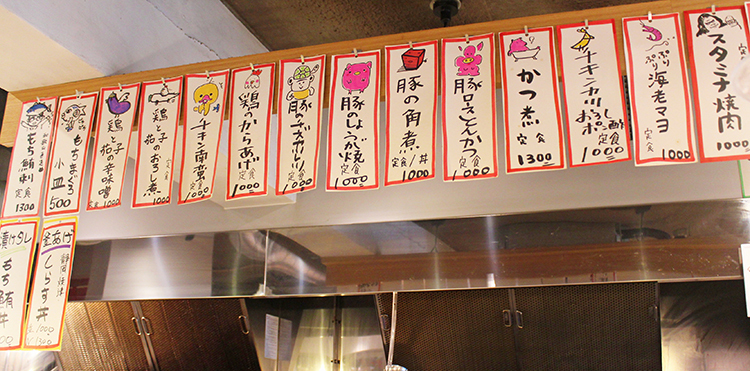 もち鮪刺
定食
1300
もちまぐろ
小皿
500
鶏と茄子の辛味噌
定食
1000
鶏と茄子のおろし煮
定食
1000
チキン南蛮
定食
1000
鶏のからあげ
定食
1000
豚の
定食
1000
豚のしょうが焼
定食
1000
豚の角煮
定食/丼
1000
豚ロースとんかつ
定食
1000
かつ煮
定食
1300
チキンカツ
おろしポン酢
定食
1000
ぷりぷり
海老マヨ
定食
1000
スタミナ焼肉
定食
1000
漬けダレ
もち鮪丼
釜あげ
しらす丼
1000
1300